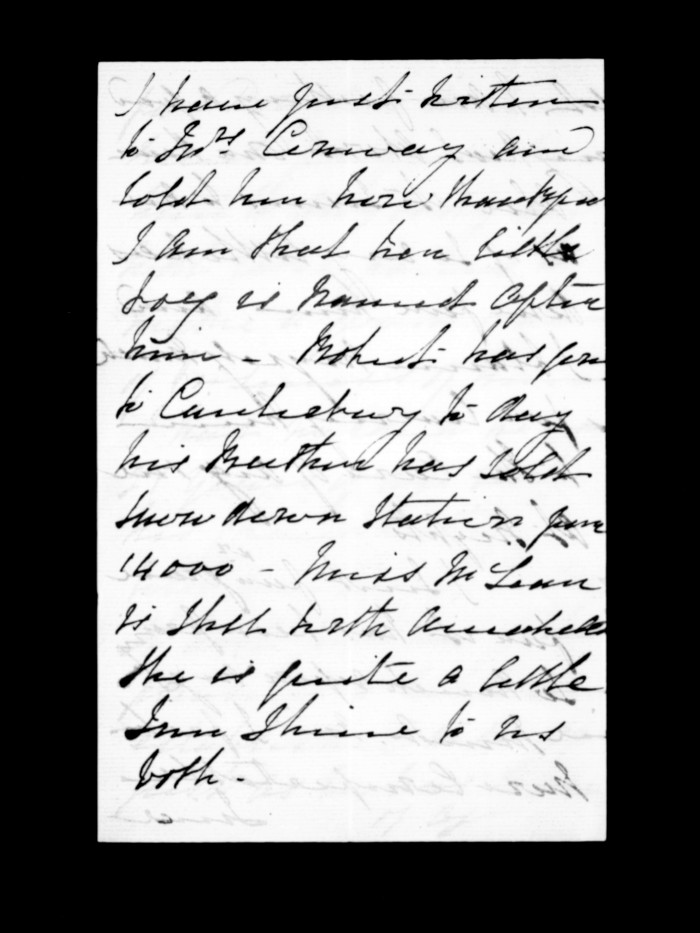 I have just written
to Mrs Conway and
told her how thankful
I am that her little
boy is named after
him - Robert has gone
to Canterbury to day
his Brother has sold
Snowdown Station for
14000 - Miss McLean
is still with
She is quite a little
Sun Shine to us
both -